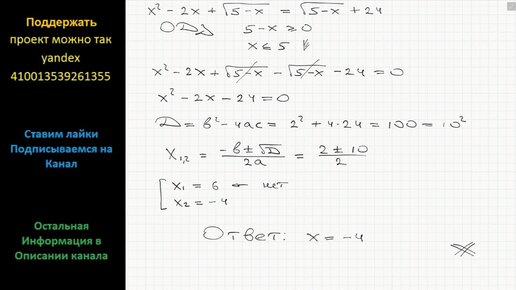 Поддержать
проект можно так
yandex
410013539261355
Ставим лайки
Подписываемся на
Канал
Остальная
Информация в
Описании канала
x² - 2x + √5-x = √5-x + 24
ОДЗ 5-x ≥ 0
x ≤ 5
x² - 2x + √5-x - √5-x - 24 = 0
x² - 2x - 24 = 0
D = b² - 4ac = 2² + 4·24 = 100 = 10²
x₁,₂ = -b ± √D / 2a = 2 ± 10 / 2
x₁ = 6 ← нет
x₂ = -4
Ответ: x = -4